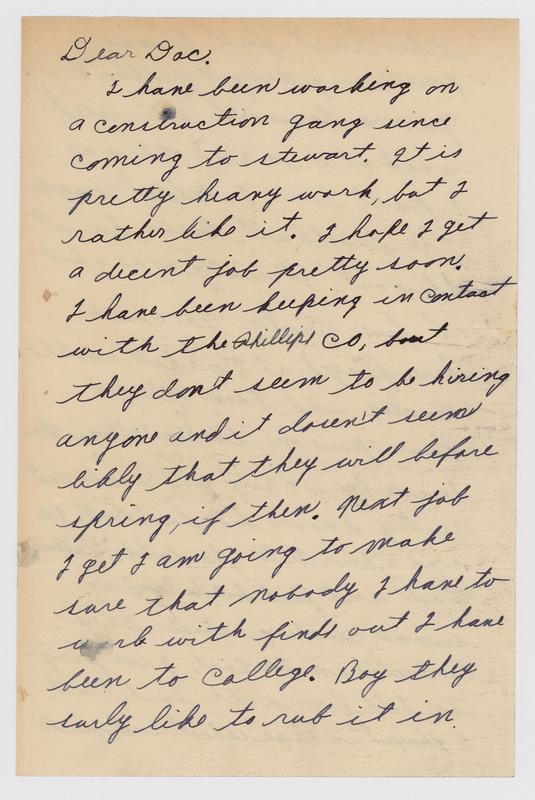 Dear Doc.
I have been working on
a construction gang since
coming to stewart. It is
pretty heavy work, but I
rather like it. I hope I get
a decent job pretty soon.
I have been keeping in contact
with the Phillips CO, but
they don't seem to be hiring
anyone and it dosen't seem
likly that they will before
spring, if then. Next job
I get I am going to make
sure that nobody I have to
work with finds out I have
been to College. Boy they
surly like to rub it in.